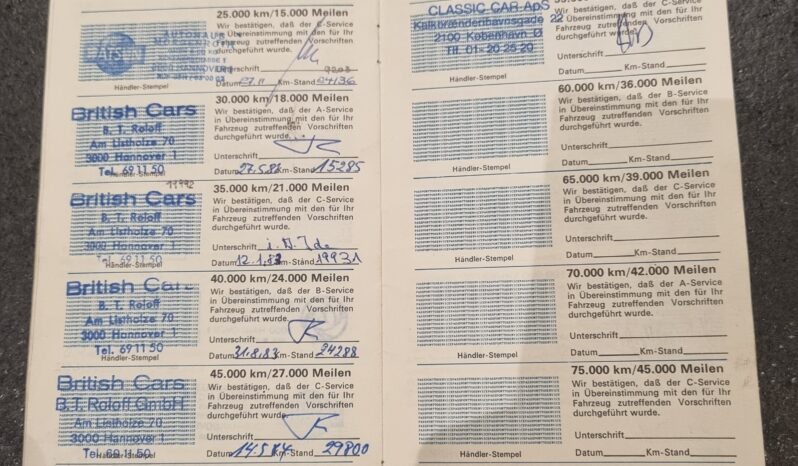 25.000 km/15.000 Meilen
Wir bestätigen, daß der C-Service
in Übereinstimmung mit den für Ihr
Fahrzeug zutreffenden Vorschriften
durchgeführt wurde.
Unterschrift
Datum 27.11 Km-Stand
Händler-Stempel
British Cars
B. T. Roloff
Am Listholze 70
3000 Hannover 1
Tel. 69 11 50
Händler-Stempel
30.000 km/18.000 Meilen
Wir bestätigen, daß der A-Service
in Übereinstimmung mit den für Ihr
Fahrzeug zutreffenden Vorschriften
durchgeführt wurde.
Unterschrift
Datum 27.5.82 Km-Stand 15285
British Cars
B. T. Roloff
Am Listholze 70
3000 Hannover 1
Tel. 69 11 50
Händler-Stempel
35.000 km/21.000 Meilen
Wir bestätigen, daß der C-Service
in Übereinstimmung mit den für Ihr
Fahrzeug zutreffenden Vorschriften
durchgeführt wurde.
Unterschrift
Datum 12.1.83 Km-Stand 19931
British Cars
B. T. Roloff
Am Listholze 70
3000 Hannover 1
Tel. 69 11 50
Händler-Stempel
40.000 km/24.000 Meilen
Wir bestätigen, daß der B-Service
in Übereinstimmung mit den für Ihr
Fahrzeug zutreffenden Vorschriften
durchgeführt wurde.
Unterschrift
Datum 31.8.83 Km-Stand 24288
British Cars
B. T. Roloff GmbH
Am Listholze 70
3000 Hannover 1
Tel. 69 11 50
Händler-Stempel
45.000 km/27.000 Meilen
Wir bestätigen, daß der C-Service
in Übereinstimmung mit den für Ihr
Fahrzeug zutreffenden Vorschriften
durchgeführt wurde.
Unterschrift
Datum 14.5.84 Km-Stand 29800
CLASSIC CAR ApS
Kalkbrænderihavnsgade 22
2100 København Ø
Tlf. 01-20 25 20
Händler-Stempel
Wir bestätigen, daß der C-Service
in Übereinstimmung mit den für Ihr
Fahrzeug zutreffenden Vorschriften
durchgeführt wurde.
Unterschrift
Datum Km-Stand
60.000 km/36.000 Meilen
Wir bestätigen, daß der B-Service
in Übereinstimmung mit den für Ihr
Fahrzeug zutreffenden Vorschriften
durchgeführt wurde.
Unterschrift
Datum Km-Stand
Händler-Stempel
65.000 km/39.000 Meilen
Wir bestätigen, daß der C-Service
in Übereinstimmung mit den für Ihr
Fahrzeug zutreffenden Vorschriften
durchgeführt wurde.
Unterschrift
Datum Km-Stand
Händler-Stempel
70.000 km/42.000 Meilen
Wir bestätigen, daß der A-Service
in Übereinstimmung mit den für Ihr
Fahrzeug zutreffenden Vorschriften
durchgeführt wurde.
Unterschrift
Datum Km-Stand
Händler-Stempel
75.000 km/45.000 Meilen
Wir bestätigen, daß der C-Service
in Übereinstimmung mit den für Ihr
Fahrzeug zutreffenden Vorschriften
durchgeführt wurde.
Unterschrift
Datum Km-Stand
Händler-Stempel